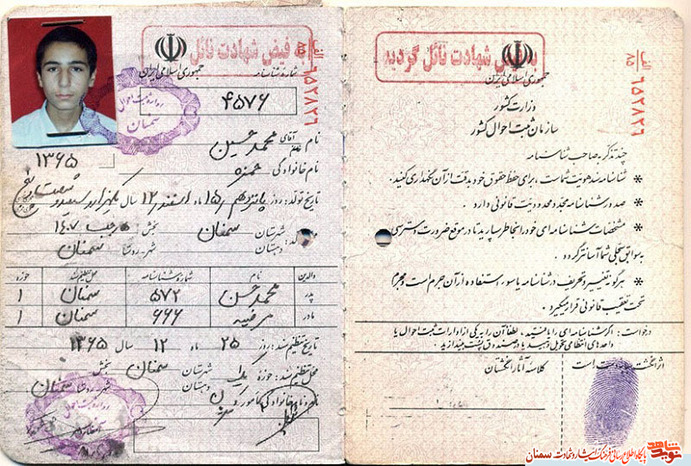 به فیض شهادت نائل
جمهوری اسلامی ایران
شماره شناسنامه
۴۵۷۶
سمنان
۱۳۶۵
نام آقای محمد حسین
نام خانوادگی حمزه
تاریخ تولد: روز پانزدهم ۱۵ ماه اسفند ۱۲ سال یکهزار و سیصد و شصت و پنج
محل تولد: شهرستان سمنان بخش
دهستان شهر-روستا سمنان
والدین نام شماره شناسنامه محل تنظیم سند حوزه
پدر محمد حسن ۵۷۲ سمنان ۱
مادر مرضیه ۶۶۶ سمنان ۱
تاریخ تنظیم سند: روز ۲۵ ماه ۱۲ سال ۱۳۶۵
محل تنظیم سند: حوزه یک شهرستان سمنان بخش
دهستان شهر-روستا سمنان
نام و نام خانوادگی مامور
الف
۸۵
۶۵۲۸۲۶
به فیض شهادت نائل گردید
جمهوری اسلامی ایران
وزارت کشور
سازمان ثبت احوال کشور
چند تذکر به صاحب شناسنامه
* شناسنامه سند هویت شماست، برای حفظ حقوق خود به دقت از آن نگهداری کنید.
* صدور شناسنامه مجدد محدودیت قانونی دارد.
* مشخصات شناسنامه ای خود را بخاطر بسپارید تا در موقع ضرورت دسترسی
به سوابق سجلی شما آسانتر گردد.
* هرگونه تغییر و تحریف در شناسنامه یا سوء استفاده از آن جرم است و مجرم
تحت تعقیب قانونی قرار میگیرد.
درخواست: اگر شناسنامه ای را یافتید، لطفاً آن را به یکی از ادارات ثبت احوال یا
واحدهای انتظامی تحویل دهید یا در صندوق پست بیندازید.
کلاسه آثار انگشتان
اثر انگشت سبابه دست راست
نوید شاهد
پایگاه اطلاع رسانی فرهنگ ایثار و شهادت سمنان